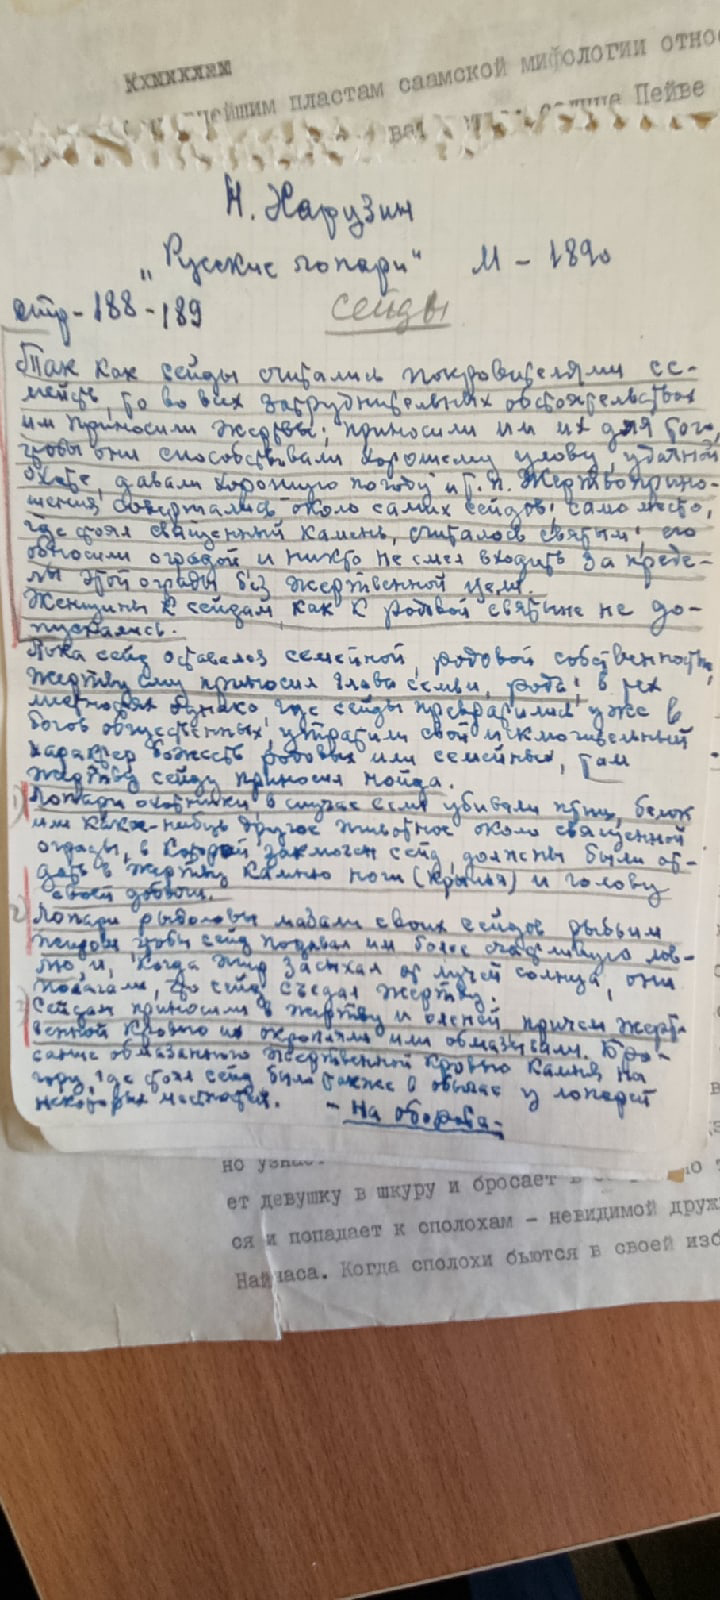 нейшим пластам саамской мифологии относ
Пейве
Н. Харузин
„Русские лопари" М – 1890
стр – 188 – 189
сейды
Так как сейды считались покровителями се-
мейств, то во всех затруднительных обстоятельствах
им приносили жертвы; приносили им их для того,
чтобы они способствовали хорошему улову, удачной
охоте, давали хорошую погоду и т. п. Жертвоприно-
шения совершались около самих сейдов; само место,
где стоял священный камень, считалось святым; его
обносили оградой и никто не смел входить за преде-
лы этой ограды без жертвенной цели.
Женщины к сейдам, как к родовой святыне не до-
пускались.
Пока сейд оставался семейной, родовой собственностью,
жертву ему приносил глава семьи, рода; в тех
местностях однако где сейды превратились уже в
богов общественных, утратили свой исключительный
характер божеств родовых или семейных, там
жертву сейду приносил нойда.
1) Лопари охотники в случае если убивали птиц, белок
или какое-нибудь другое животное около священной
ограды, в которой заключен сейд, должны были от-
дать в жертву камню ноги (крылья) и голову
своей добычи.
2) Лопари рыболовы мазали своих сейдов рыбьим
жиром чтобы сейд подавал им более счастливую лов-
лю, и, когда жир засыхал от лучей солнца, они
полагали, что сейд съедал жертву.
3) Сейдам приносили в жертву и оленей причем жерт-
венной кровью их окропляли или обмазывали. Бро-
сание обмазанного жертвенной кровью камня на
гору, где стоял сейд было также в обычае у лопарей
некоторых местностей. – на обороте –
но узнае
ет девушку в шкуру и бросает в
ся и попадает к сполохам – невидимой друж
Найнаса. Когда сполохи бьются в своей изб